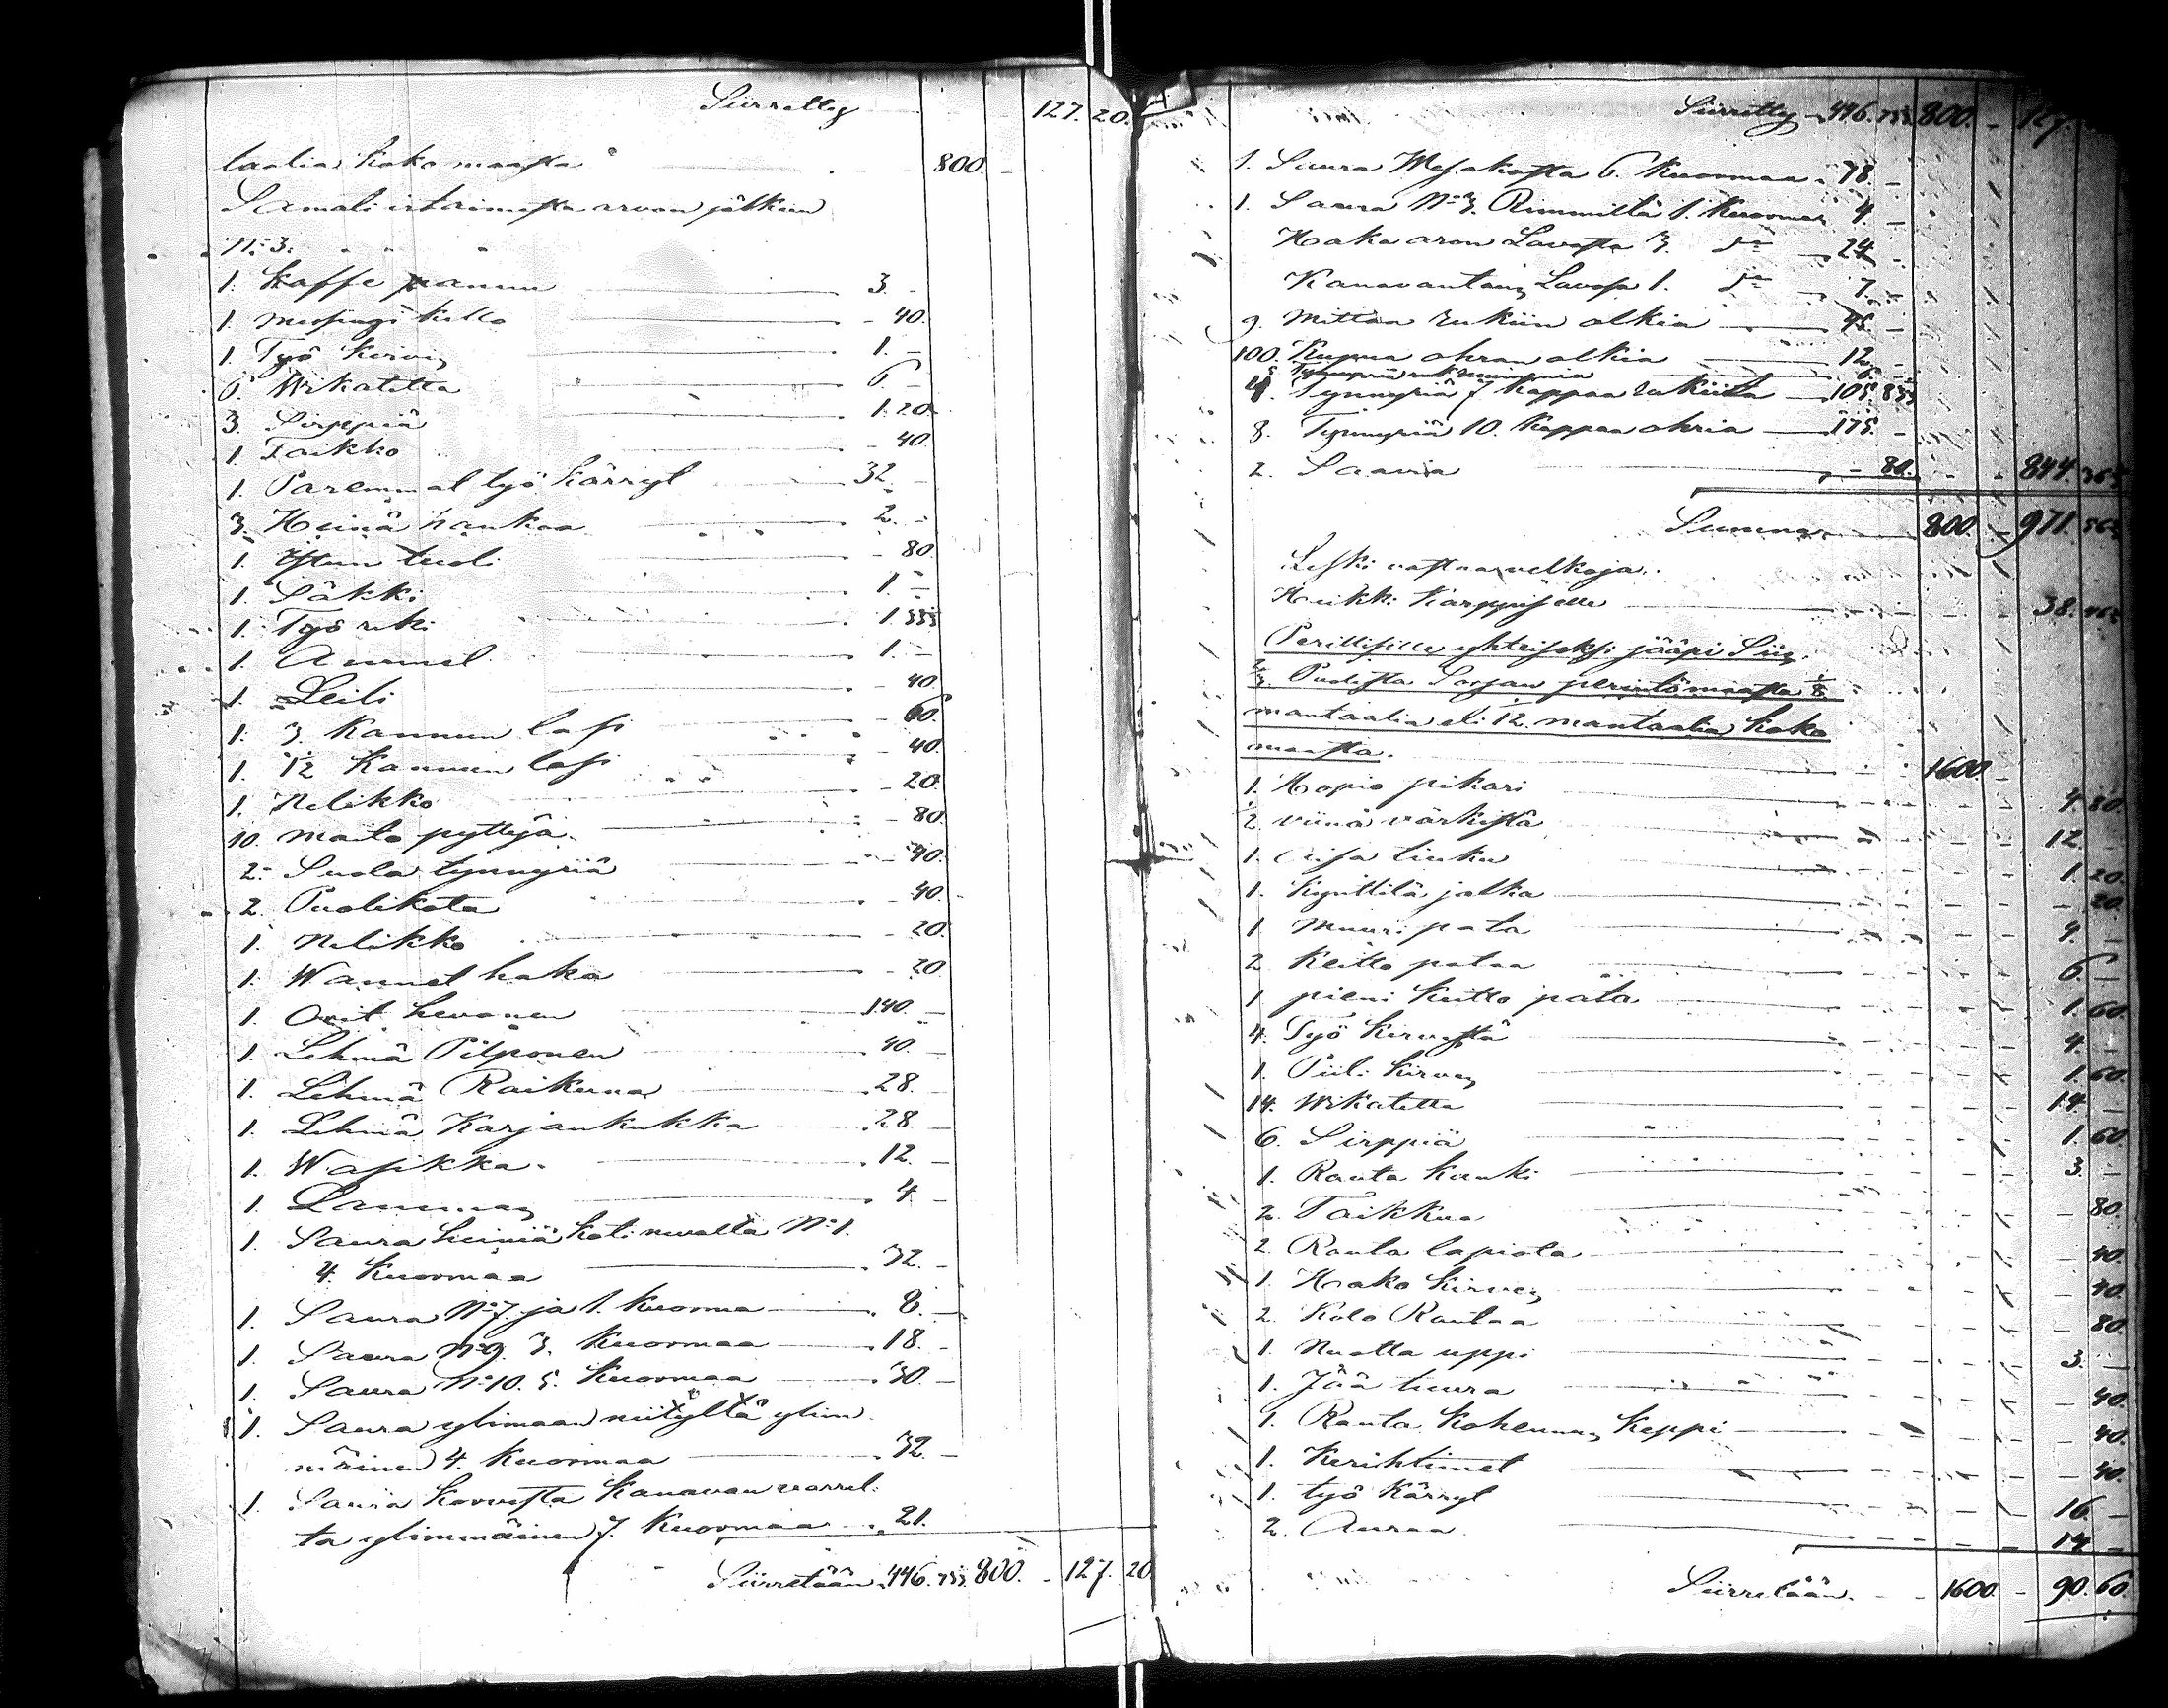 Siirretty 127. 20.
taalia koko maasta 800. -
Samati irtaimesta arvon jälkeen
N:o 3.
1. Kaffe pannu 3. -
1. messingi kello - 40.
1. Työ kirves 1. -
6. Wikatetta 6. -
3. Sirppiä 1. 20.
1. Taikko - 40.
1. Paremmat työ kärryt 32. -
3. Heinä hankoa 2. -
1. Istun tuoli - 80.
1. Säkki 1. -
1. Työ reki 1 333
1. Ammel 1. -
1. Leili - 40.
1. 3. Kannun lasi - 60.
1. 1/2 Kannun lasi - 40.
1. Nelikko - 20.
10. maito pyttyä - 80.
2. Suola tynnyriä - 40.
2. Puolikota - 40.
1. Nelikko - 20.
1. Wannet haka - 20.
1. Orit hevonen 140. -
1. Lehmä Pilponen 40. -
1. Lehmä Raikuna 28. -
1. Lehmä Karjankukka 28. -
1. Wasikka 12. -
1. Lammas 4. -
1. Saura heiniä koti nevalta N:o 1.
4. Kuormaa 32. -
1. Saura N:o 7. ja 1. Kuorma 8. -
1. Saura N:o 9. 3. Kuormaa 18. -
1. Saura N:o 10. 5. Kuormaa 30. -
1. Saura ylimaan niityltä ylim
mäinen 4. Kuormaa 32. -
1. Saura korvesta Kanavan varrel
ta ylimmäinen 7. Kuormaa 21.
Siirretään 446. 733. 800. - 127. 20
Siirretty 446. 733. 800. - 127.
1. Saura Mesakosta 6. Kuormaa 78. -
1. Saura N:o 3. Rimmiltä 1. Kuorma 4. -
Haka aron Lavosta 3. d:o 24 -
Kanavantaus Lavosa 1. d:o 7. -
9. Mittaa rukiin olkia 45. -
100. Kupua ohran olkia 12. -
4. Tynnyriä 7 Kappaa rukiita 105. 833
8. Tynnyriä 10. Kappaa ohria 175. -
2. Saavia - 80. 844. 365
Summa 800. - 971. 565
Leski vastaa velkoja.
Heikki Karppiselle 38. 465
Perillisille yhteiseksi jääpi Siis
2/3. Puolesta Sorjan perintömaasta 1/8
mantaalia eli 1/12. mantaalia koko
maasta. 1600.
1. Hopia pikari 4. 80.
1/2 viinä värkistä 12. -
1. Aisa tiuku 1. 20.
1. Kynttilä jalka - 20.
1 Muuri pata 4. -
2 Keitto pataa 6. -
1 pieni keitto pata 1. 60
4. Työ kirvestä 4. -
1. Piili kirves 1. 60.
14. Wikatetta 14. -
6. Sirppiä 1. 60
1. Rauta kanki 3. -
2. Taikkua - 80.
2 Rauta lapiota - 40.
1. Hako kirves - 40.
2. Kolo Rautaa - 80.
1. Nuotta uppi 3. -
1. Jää tuura - 40.
1. Rauta kohennus keppi - 40.
1. Kerihtimet - 40.
1. työ kärryt 16. -
2. Auraa 14 -
Siirretään. 1600. - 90. 60.